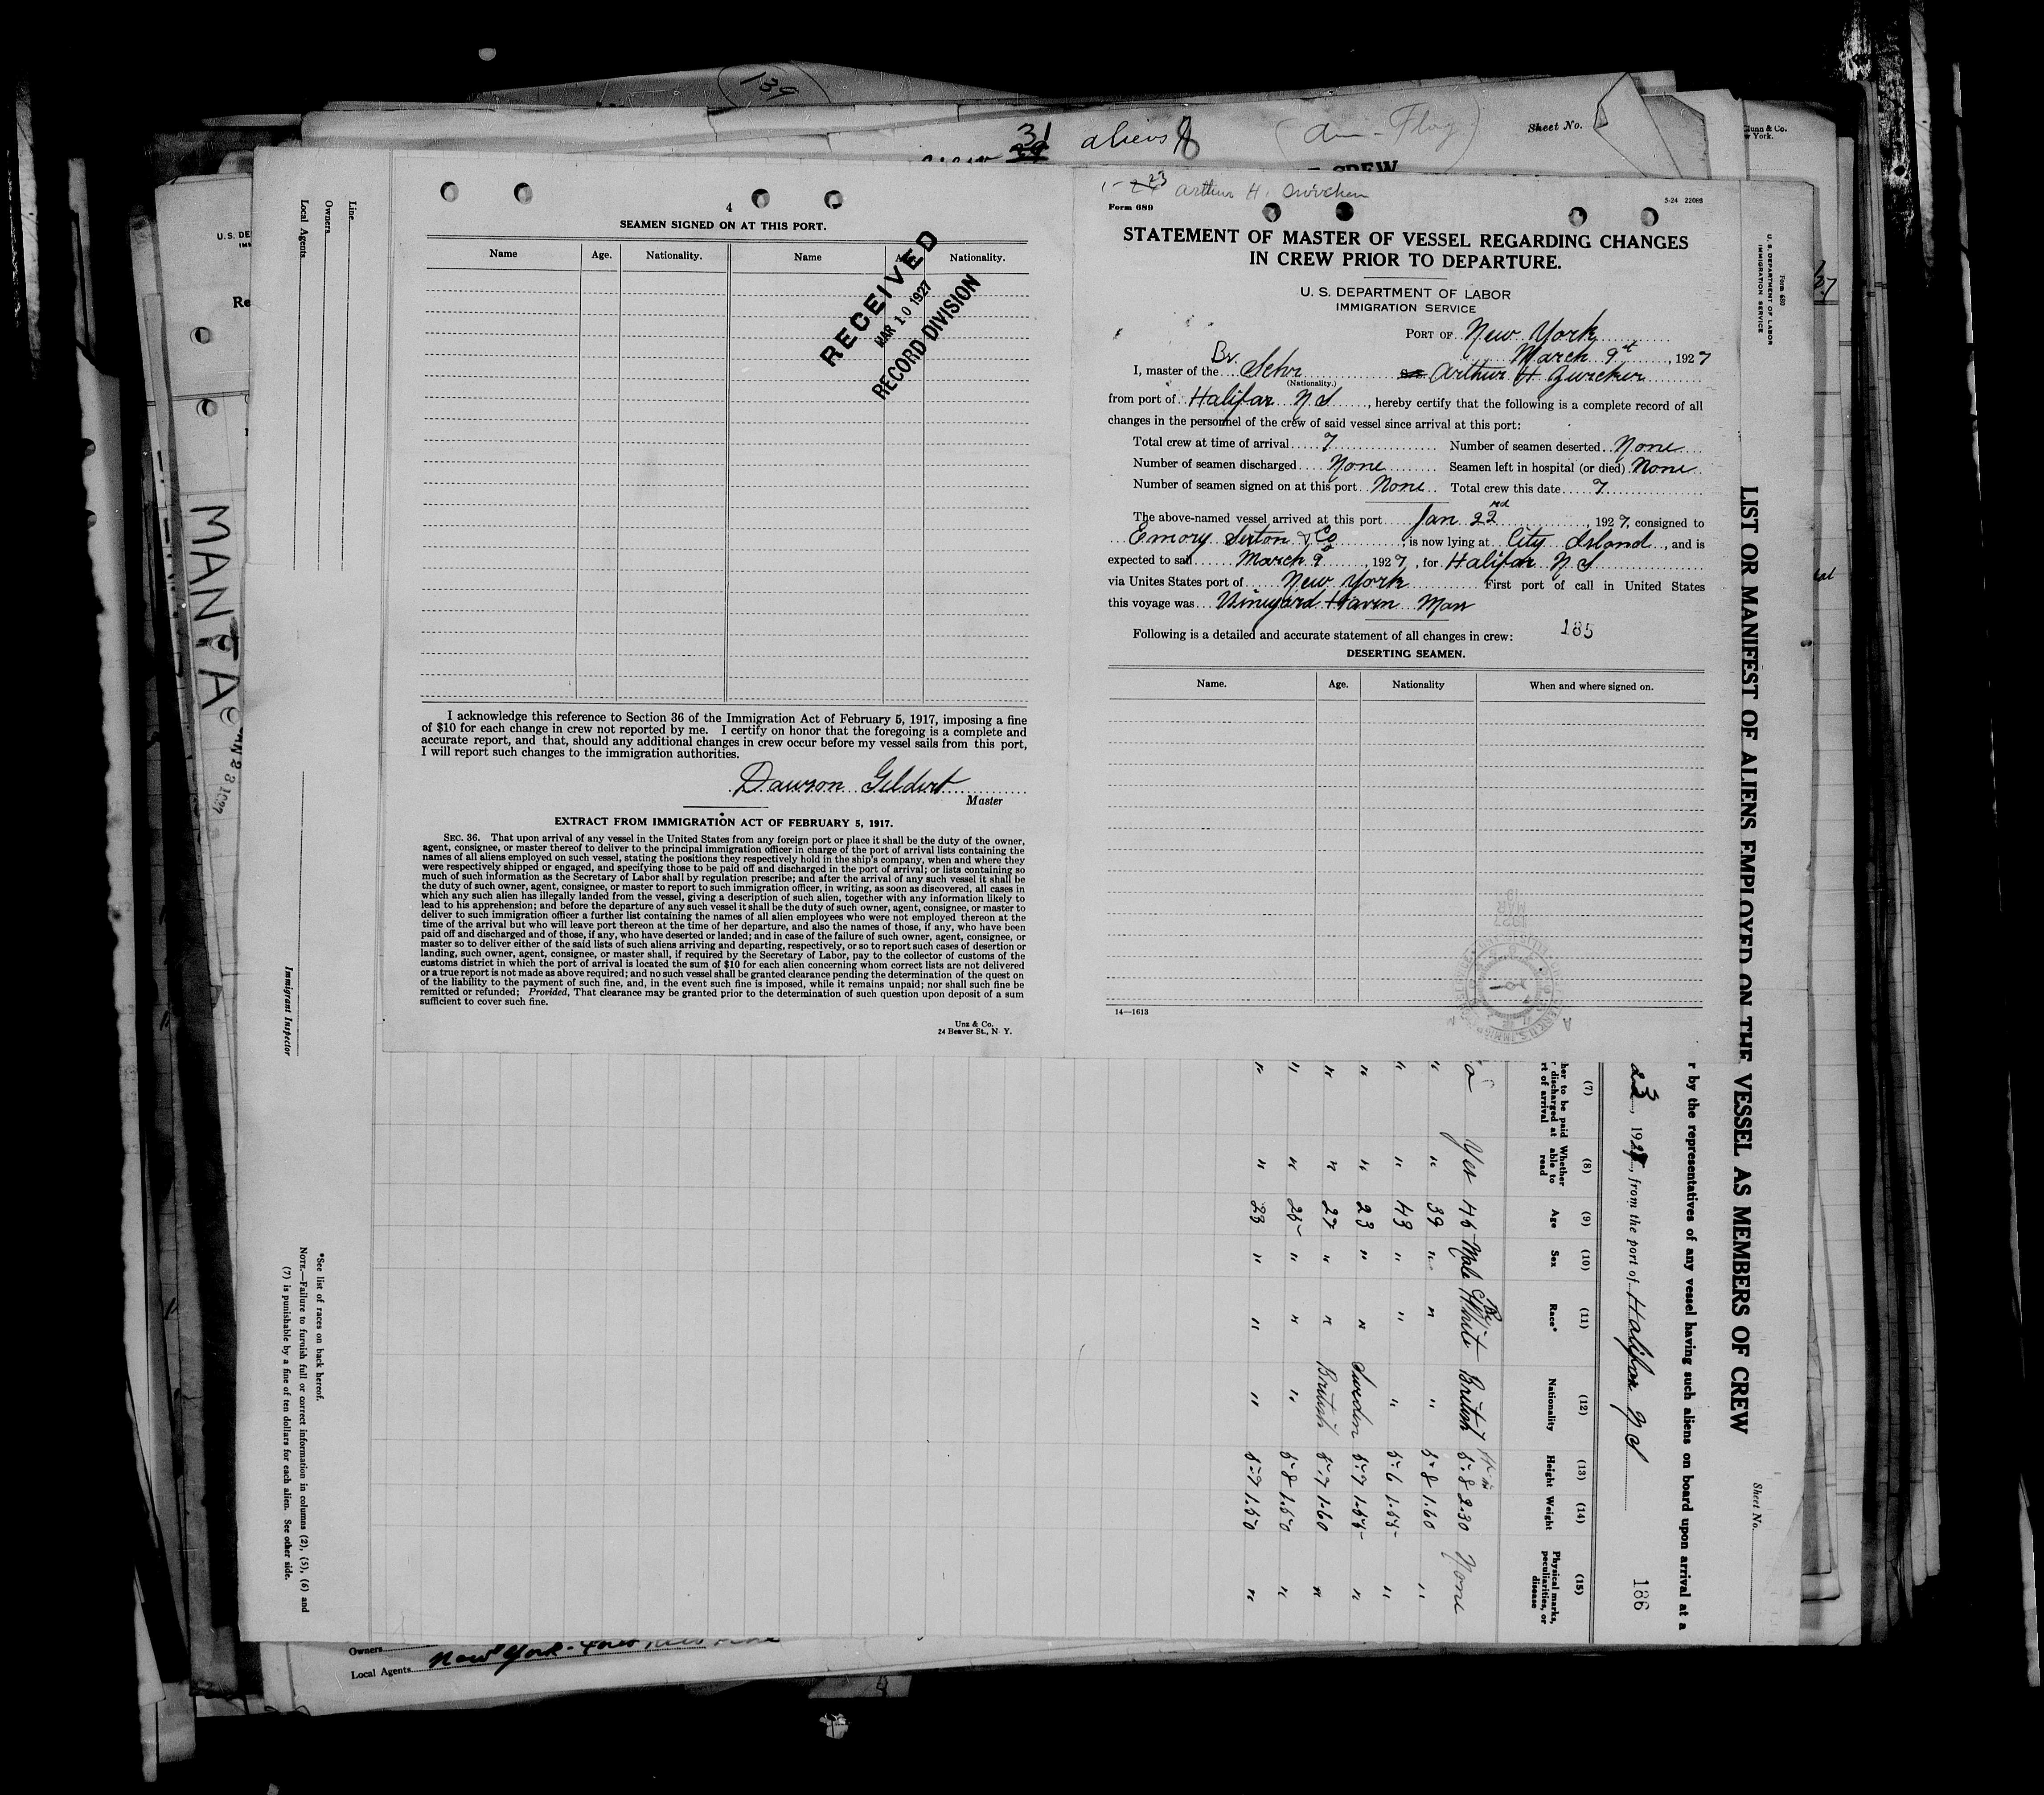 139
31 aliens
(Am - Flag)
Sheet No.
CREW
Line
Owners
Local Agents
4
SEAMEN SIGNED ON AT THIS PORT.
Name Age. Nationality. Name Nationality.
RECEIVED
MAR 10 1927
RECORD DIVISION
I acknowledge this reference to Section 36 of the Immigration Act of February 5, 1917, imposing a fine
of $10 for each change in crew not reported by me. I certify on honor that the foregoing is a complete and
accurate report, and that, should any additional changes in crew occur before my vessel sails from this port,
I will report such changes to the immigration authorities.
Dawson Geldert
Master
EXTRACT FROM IMMIGRATION ACT OF FEBRUARY 5, 1917.
SEC. 36. That upon arrival of any vessel in the United States from any foreign port or place it shall be the duty of the owner,
agent, consignee, or master thereof to deliver to the principal immigration officer in charge of the port of arrival lists containing the
names of all aliens employed on such vessel, stating the positions they respectively hold in the ship's company, when and where they
were respectively shipped or engaged, and specifying those to be paid off and discharged in the port of arrival; or lists containing so
much of such information as the Secretary of Labor shall by regulation prescribe; and after the arrival of any such vessel it shall be
the duty of such owner, agent, consignee, or master to report to such immigration officer, in writing, as soon as discovered, all cases in
which any such alien has illegally landed from the vessel, giving a description of such alien, together with any information likely to
lead to his apprehension; and before the departure of any such vessel it shall be the duty of such owner, agent, consignee, or master to
deliver to such immigration officer a further list containing the names of all alien employees who were not employed thereon at the
time of the arrival but who will leave port thereon at the time of her departure, and also the names of those, if any, who have been
paid off and discharged and of those, if any, who have deserted or landed; and in case of the failure of such owner, agent, consignee, or
master so to deliver either of the said lists of such aliens arriving and departing, respectively, or so to report such cases of desertion or
landing, such owner, agent, consignee, or master shall, if required by the Secretary of Labor, pay to the collector of customs of the
customs district in which the port of arrival is located the sum of $10 for each alien concerning whom correct lists are not delivered
or a true report is not made as above required; and no such vessel shall be granted clearance pending the determination of the quest on
of the liability to the payment of such fine, and, in the event such fine is imposed, while it remains unpaid; nor shall such fine be
remitted or refunded; Provided, That clearance may be granted prior to the determination of such question upon deposit of a sum
sufficient to cover such fine.
Unz & Co.
24 Beaver St., N. Y.
Arthur H.
Form 689 5-24 22068
STATEMENT OF MASTER OF VESSEL REGARDING CHANGES
IN CREW PRIOR TO DEPARTURE.
U. S. DEPARTMENT OF LABOR
IMMIGRATION SERVICE
PORT OF New York
March 9th, 1927
I, master of the Br. Schr Arthur H Zwicker
(Nationality.)
from port of Halifax N S, hereby certify that the following is a complete record of all
changes in the personnel of the crew of said vessel since arrival at this port:
Total crew at time of arrival 7 Number of seamen deserted None
Number of seamen discharged None Seamen left in hospital (or died) None
Number of seamen signed on at this port None Total crew this date 7
The above-named vessel arrived at this port Jan 22nd, 1927, consigned to
Emory Sexton & Co, is now lying at City Island, and is
expected to sail March 9th, 1927, for Halifax N S
via Unites States port of New York First port of call in United States
this voyage was Vineyard Haven Mass
Following is a detailed and accurate statement of all changes in crew: 185
DESERTING SEAMEN.
Name. Age. Nationality When and where signed on.
14—1613
Form 680
U. S. DEPARTMENT OF LABOR
IMMIGRATION SERVICE
LIST OR MANIFEST OF ALIENS EMPLOYED ON THE VESSEL AS MEMBERS OF CREW
Sheet No.
r by the representatives of any vessel having such aliens on board upon arrival at a
23, 1927, from the port of Halifax N S 186
(7) (8) (9) (10) (11) (12) (13) (14) (15)
her to be paid r discharged at rt of arrival Whether able to read Age Sex Race* Nationality Height Weight Physical marks, peculiarities, or disease
Yes 45 Male White British 5-8 2.30 None
" " 39 " " " 5-8 1.60 "
" " 43 " " " 5-6 1.55 "
" " 23 " " Sweden 5-7 1.55 "
" " 27 " " British 5-7 1.60 "
" " 25 " " " 5-8 1.50 "
" " 23 " " " 5-7 1.50 "
Immigrant Inspector
*See list of races on back hereof.
NOTE.—Failure to furnish full or correct information in columns (2), (5), (6) and
(7) is punishable by a fine of ten dollars for each alien. See other side.
MANTA
Owners
Local Agents New York